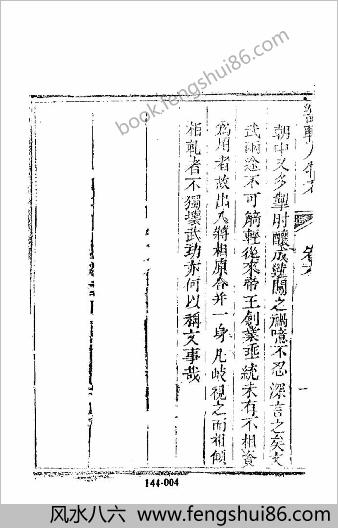 朝中又多掣肘釀成鏬闖之禍噫不忍深言之矣文
武兩途不可觭輕後來帝王創業垂統未有不相資
爲用者故出入將相原合并一身凡歧視之而相傾
相軋者不獨壞武功亦何以稱文事哉
144-004
book.fengshui86.com
风水八六 www.fengshui86.com